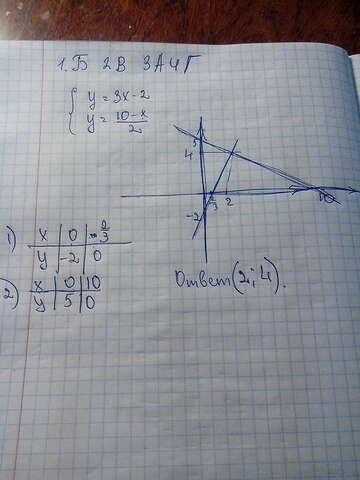 1.Б 2В 3А4Г
{ y = 3x-2
y = 10-x/2
5
4
2/3 2 10
-2
1) x | 0 | 2/3
y | -2 | 0
2) x | 0 | 10
y | 5 | 0
Ответ(2;4).